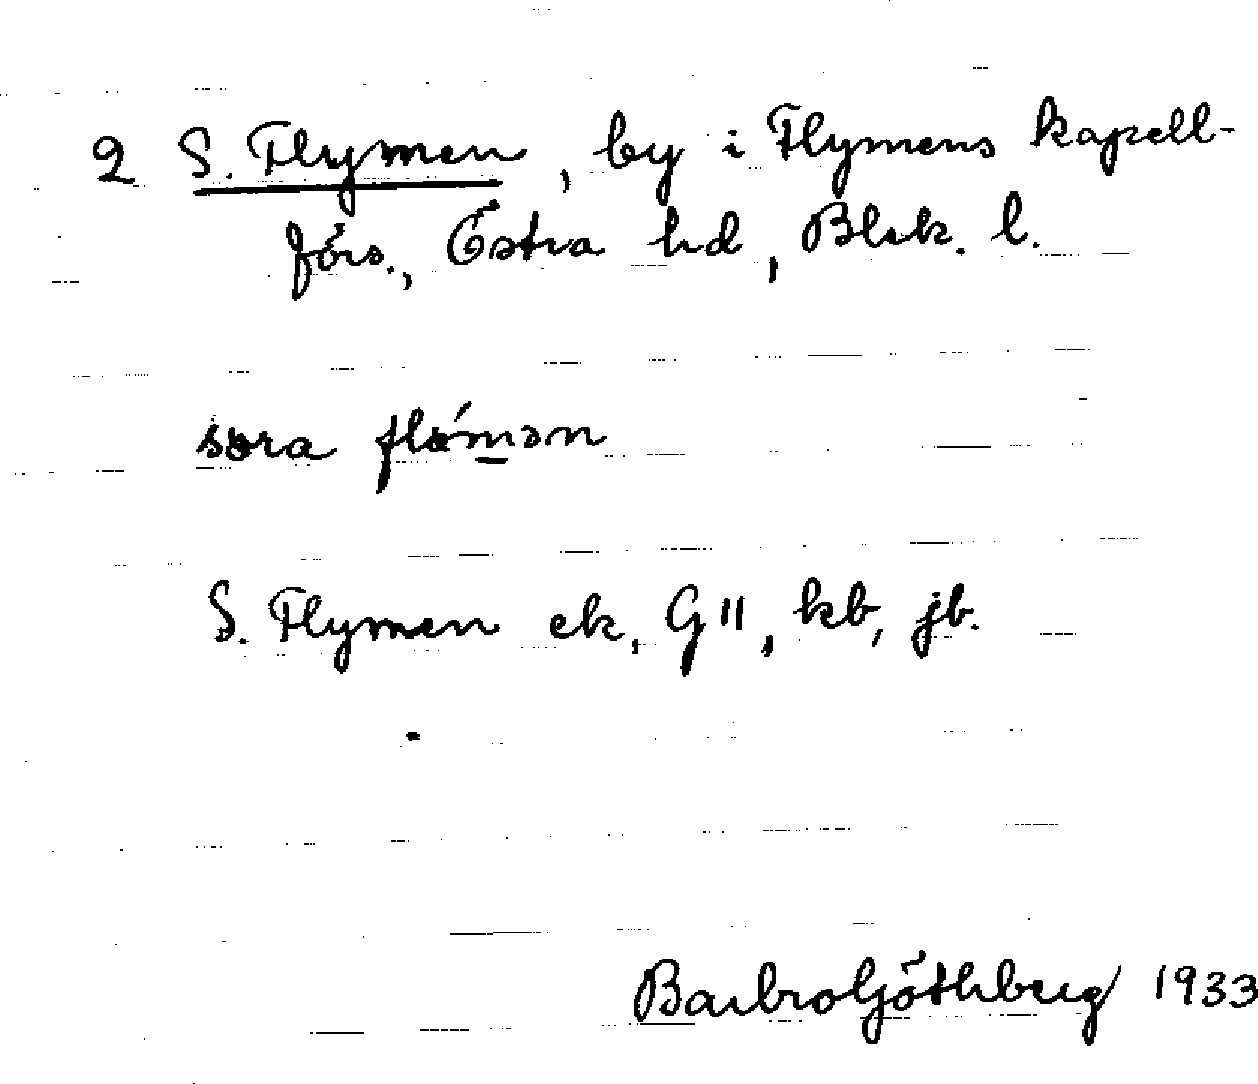 2 S. Flymen, by i Flymens kapell-
förs., Östra hd, Blek. l.
søra flǿmən
S. Flymen ek, G II, kb, jb.
Barbro Göthberg 1933